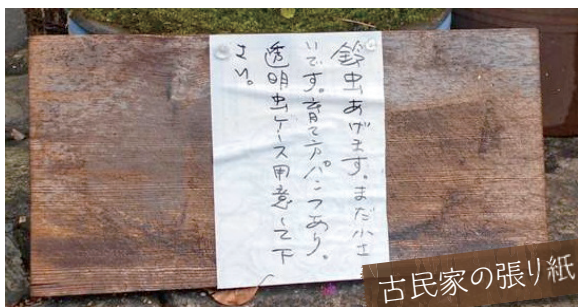 鈴虫あげます。まだ小さ
いです。育て方パンフあり。
透明虫ケース用意して下
さい。
古民家の張り紙